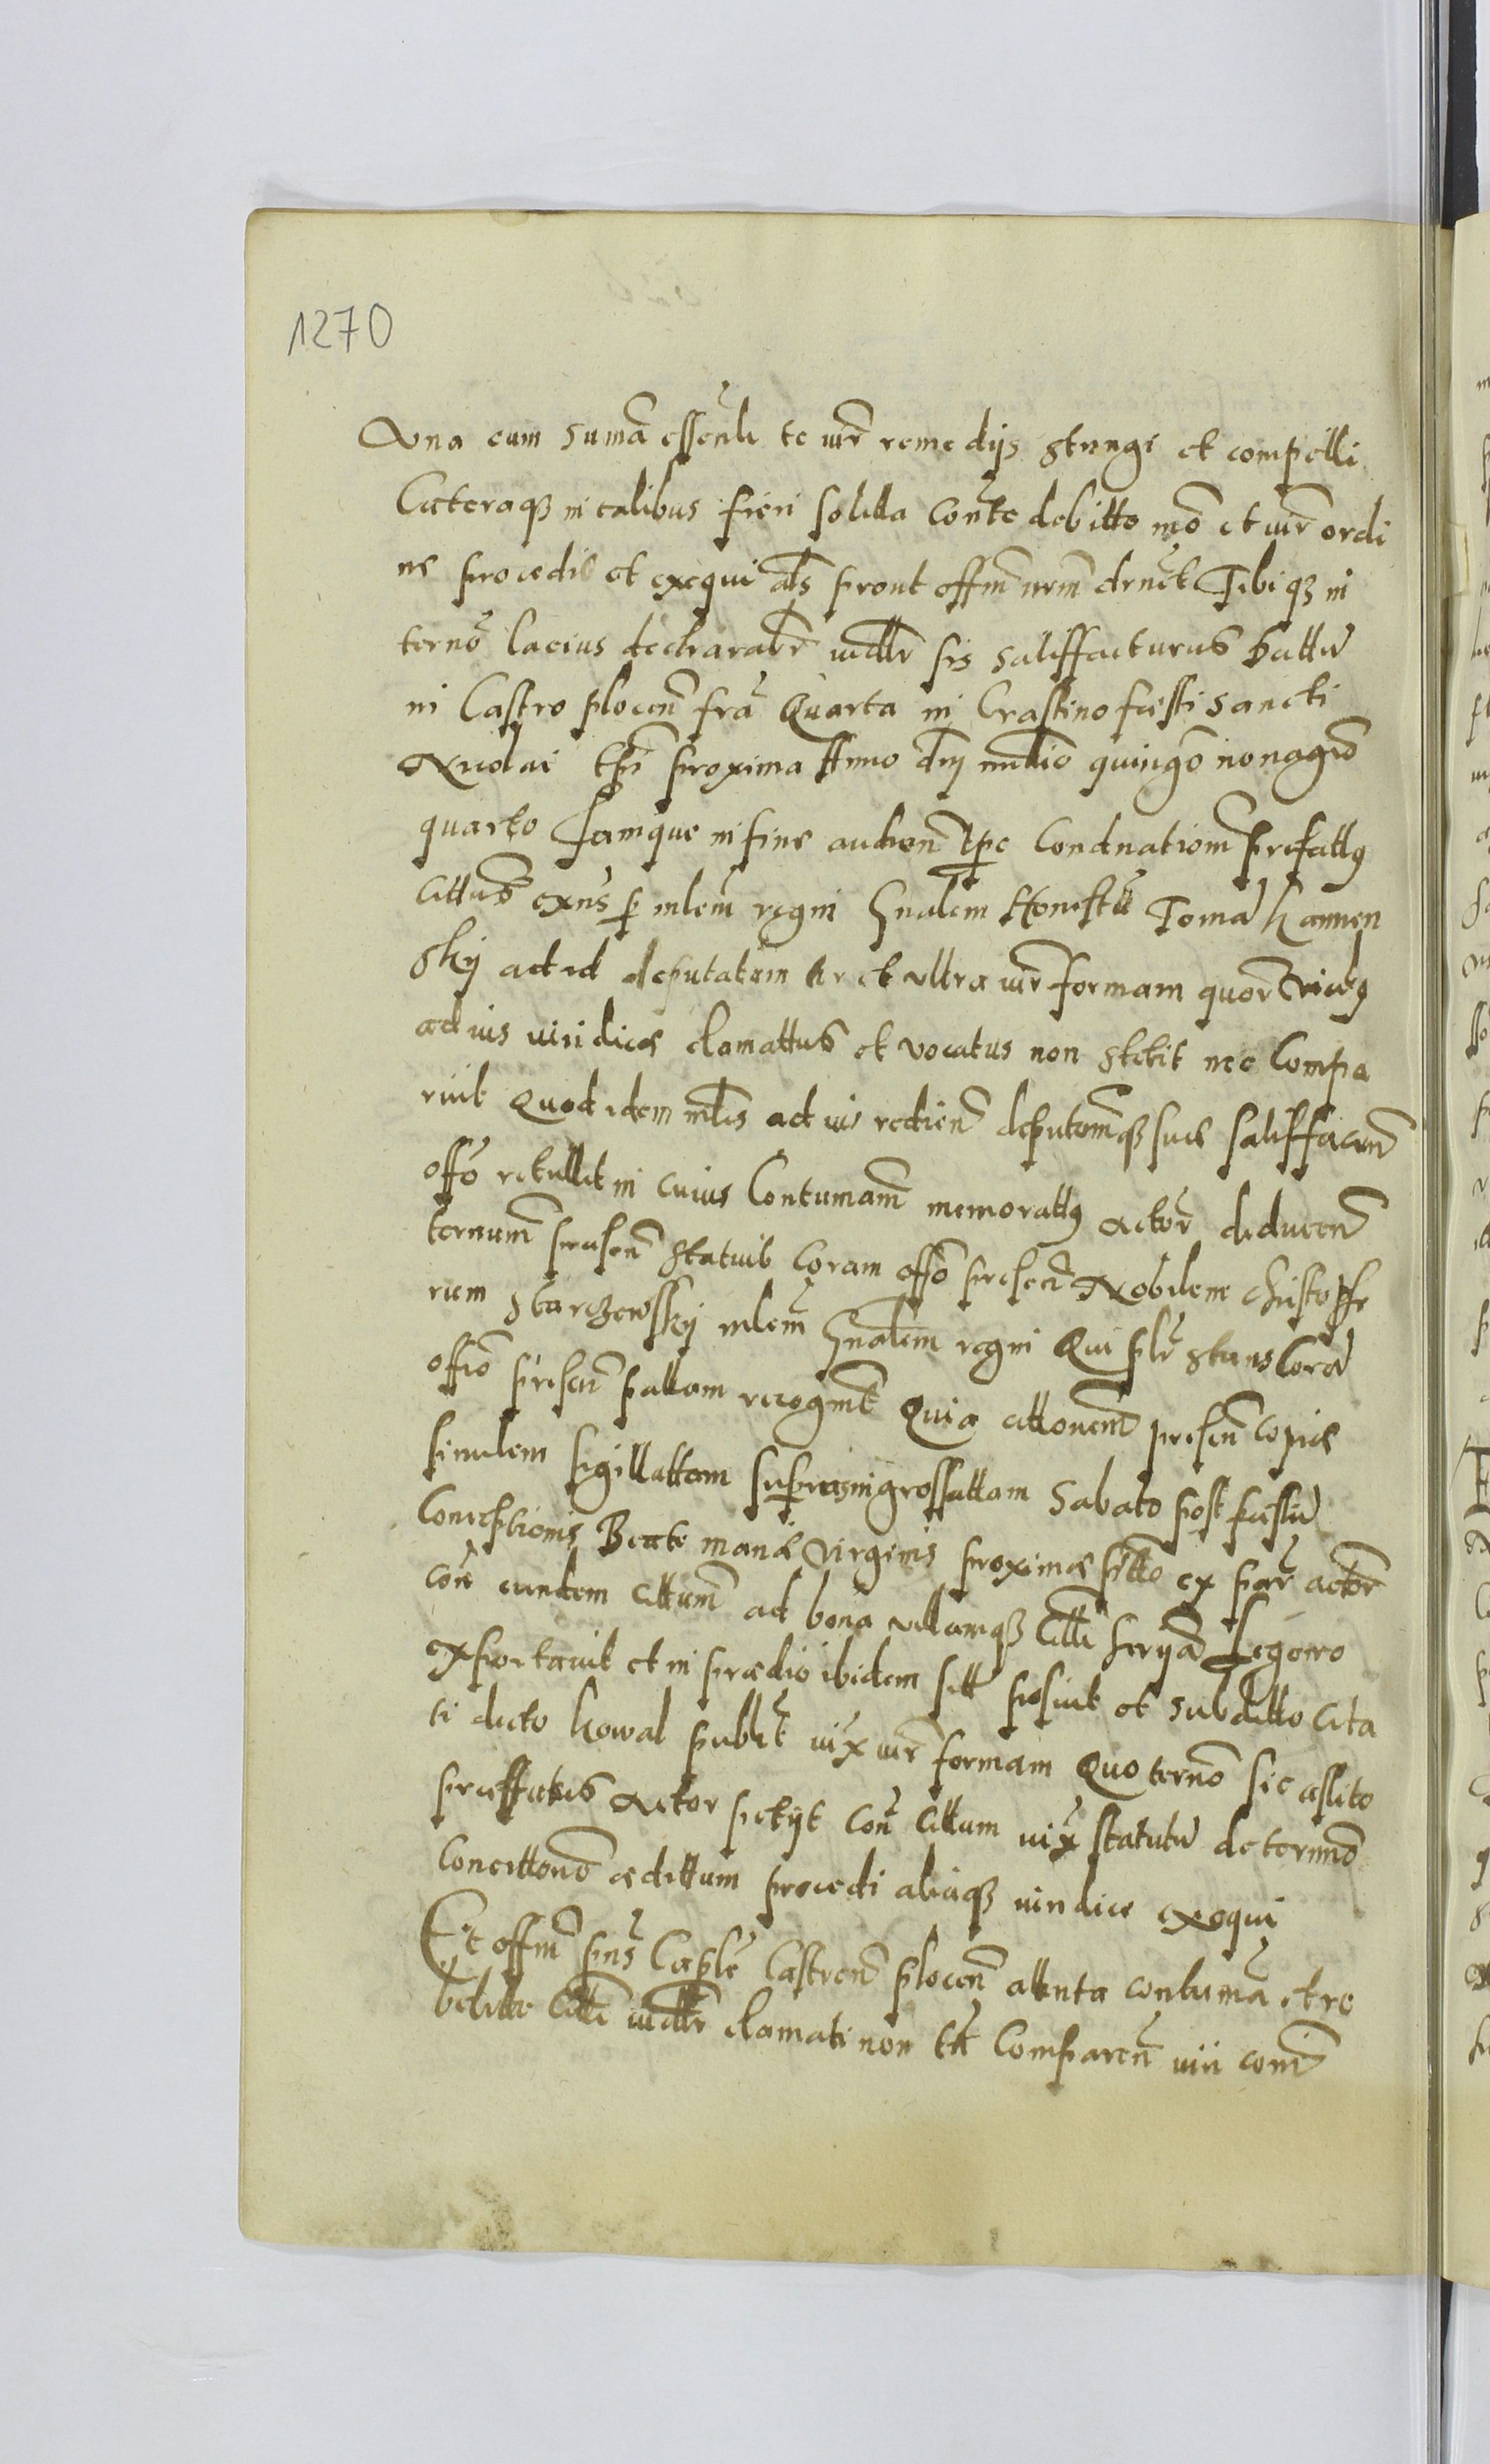 1270
Una cum suma essenli te iur remedijs stringi et compelli
Cæteraqꝫ in talibus fieri solitta Conte debitto mō et iur ordi
ne procedi et exequi als prout offm nrm drnet Tibi qꝫ in
terno lacius declarabr iudlr sis satisffacturus Dattu
in Castro plocen fra Quarta in Crastino fæsti sancti
Nicolai Epi proxima Anno dnj mllio quingo nonagō
quarto Jamque in fine audien tpe Condnationi prefattus
Cittus exns p mlem regni Gnalem Honestū Toma Kamien
skij ad id deputatum ter et ultra iur formam quor Vicibus
ad ius iuridice clamattus et vocatus non stetit nec Compa
ruit Quod idem mlis ad ius redien deputomqꝫ sue satisffacien
offo retullit in cuius Contumam memorattus actor deducen
ternum presen statuit Coram offo presen Nobilem Christoffe
rum Starzewskij mlem Gnalem regni Qui plr stans Cora
offio presen pallam recognit Quia cittonem presen copiæ
similem sigillattam superius ingrossattam Sabato post fæstu
Conceptionis Beate mariæ Virginis proximæ pritto ex par actor
con eundem Cittum ad bona villamqꝫ Citti hæryā Legowo
exportavit et in prædio ibidem sitt posuit et subditto Cita
ti dicto Kowal publit iux iur formam Quo terno sic asstito
præffatus Actor petijt con Cittum iux statutu de termno
Concittono æditum procedi aliaqꝫ iuridice exequi
Et offm pns Caplē Castren plocen attenta contuma et re
belitte Citti iudlr clamati non tn Comparen uii coni